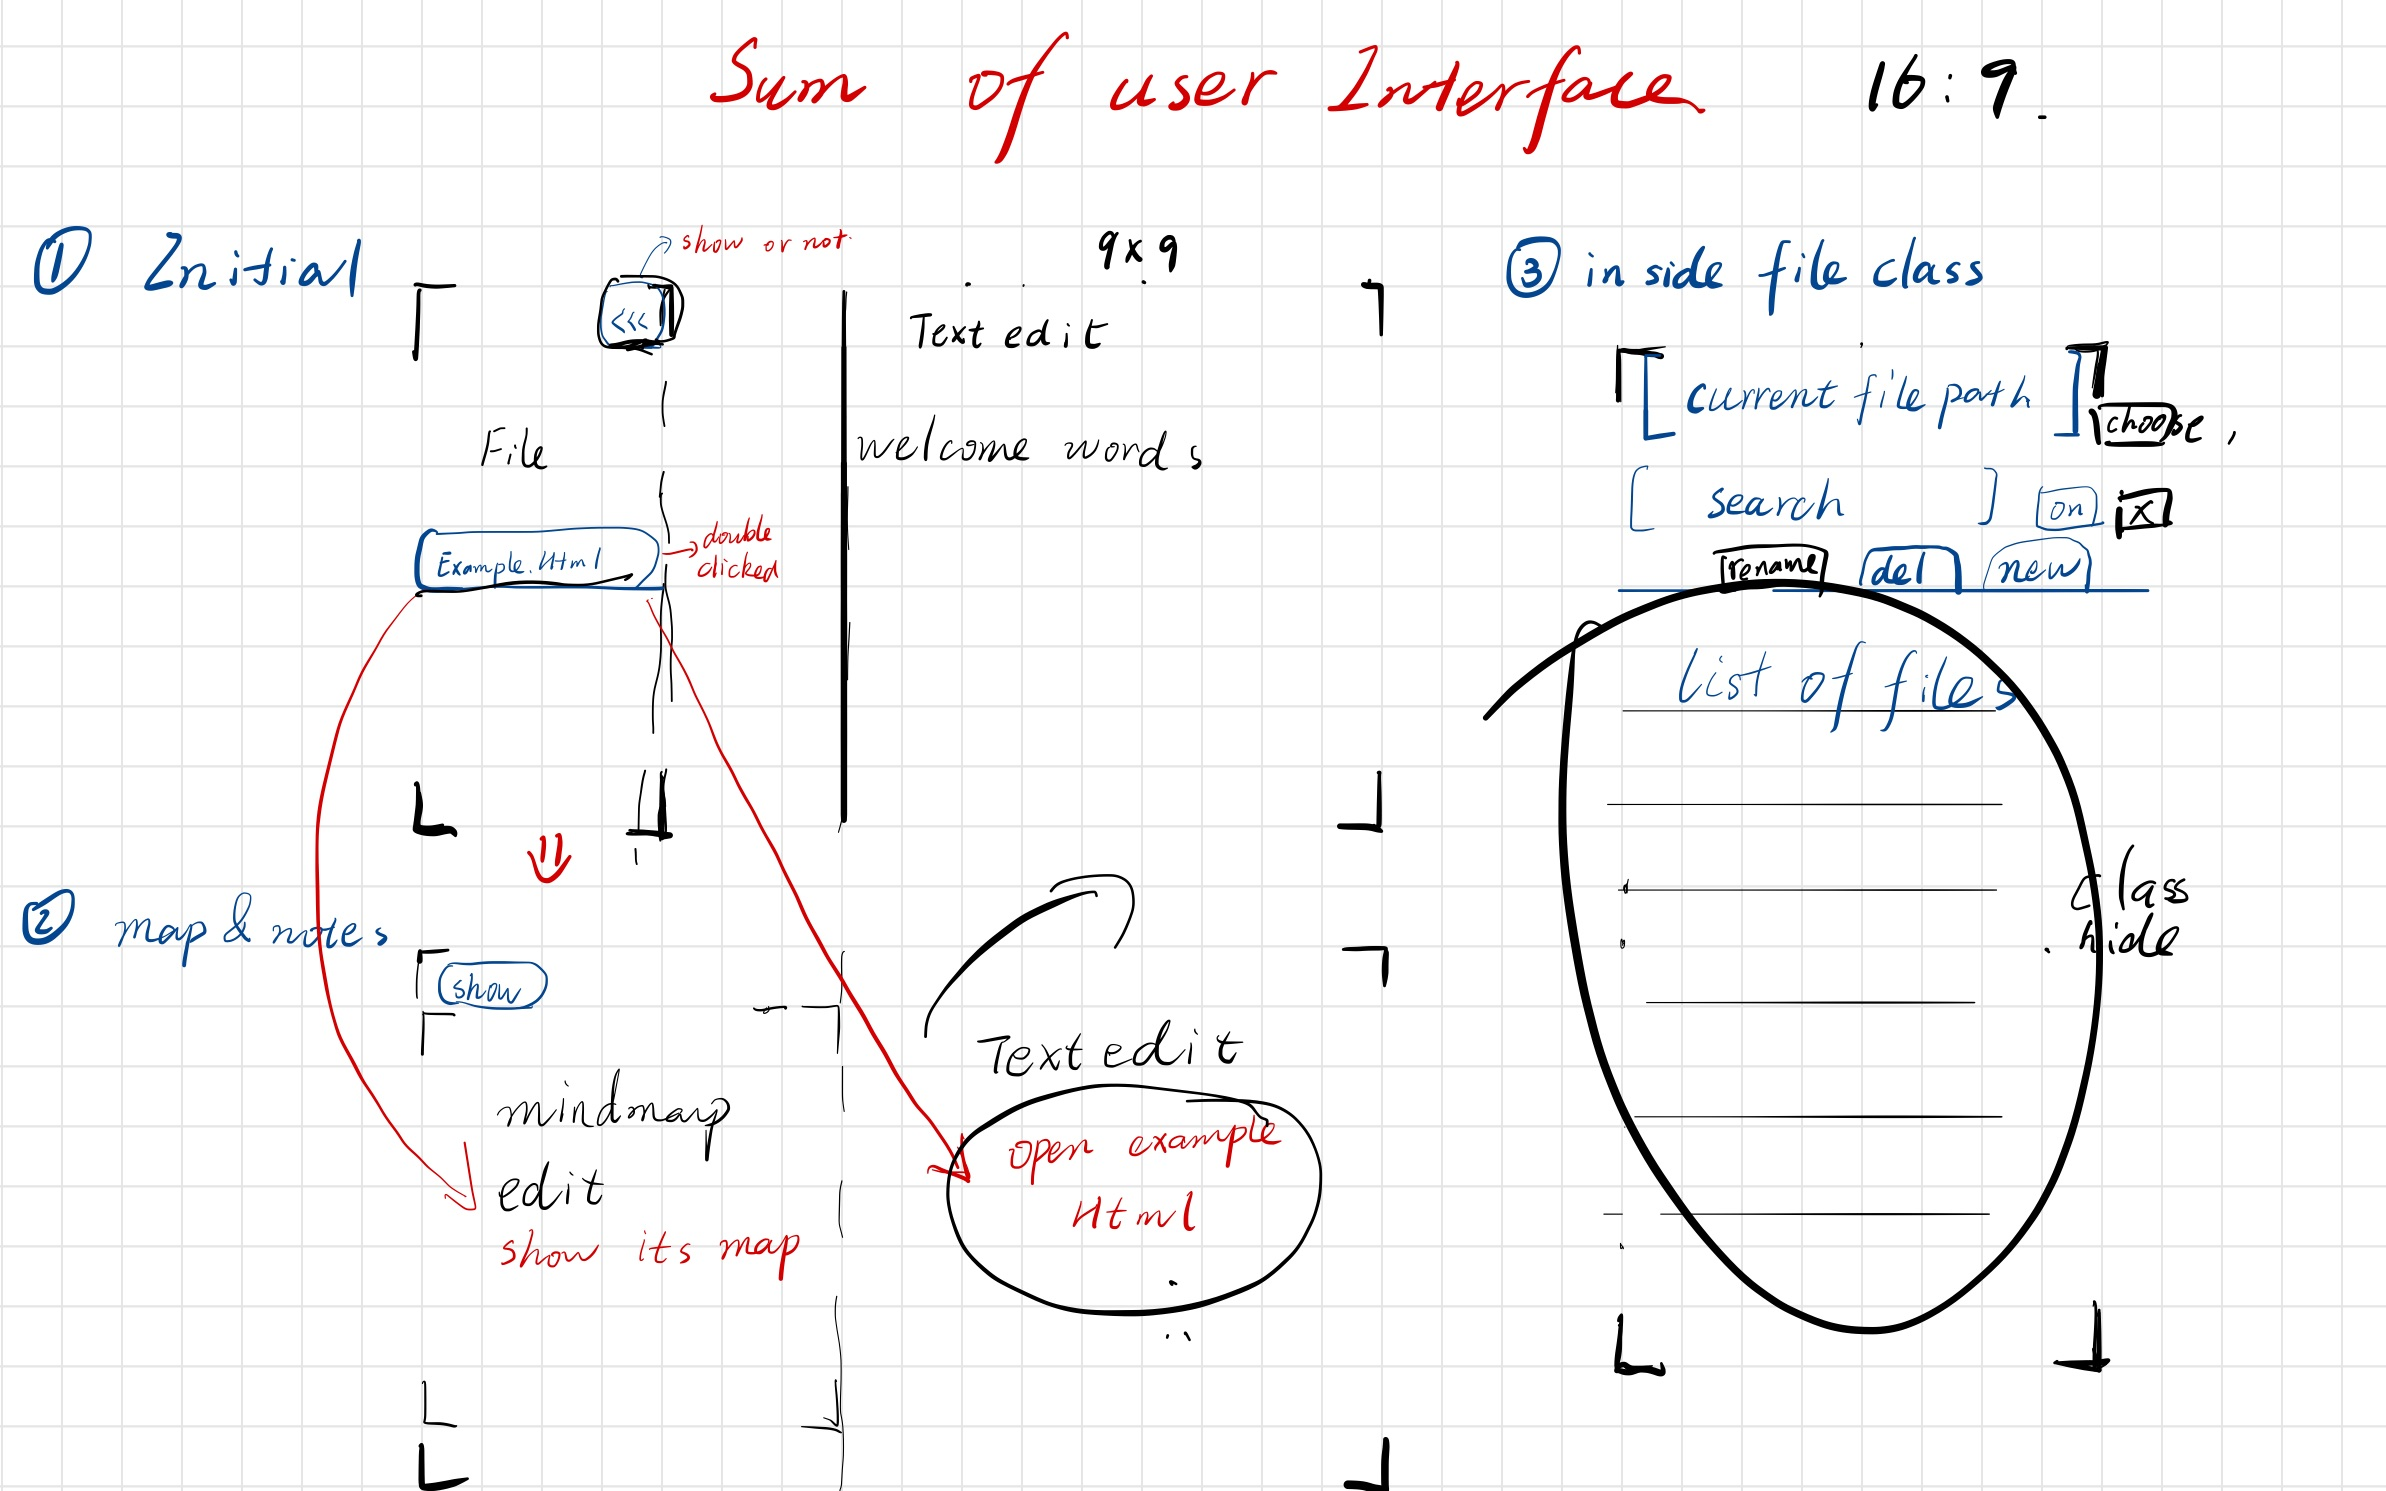 Sum of user Interface 16:9.
① Initial
show or not.
<<<
9x9
Text edit
File
welcome words
Example.Html
double
clicked
② map & notes
show
mindmap
edit
show its map
Text edit
open example
Html
③ inside file class
current file path
choose,
search
on
X
rename
del
new
List of files
class
hide